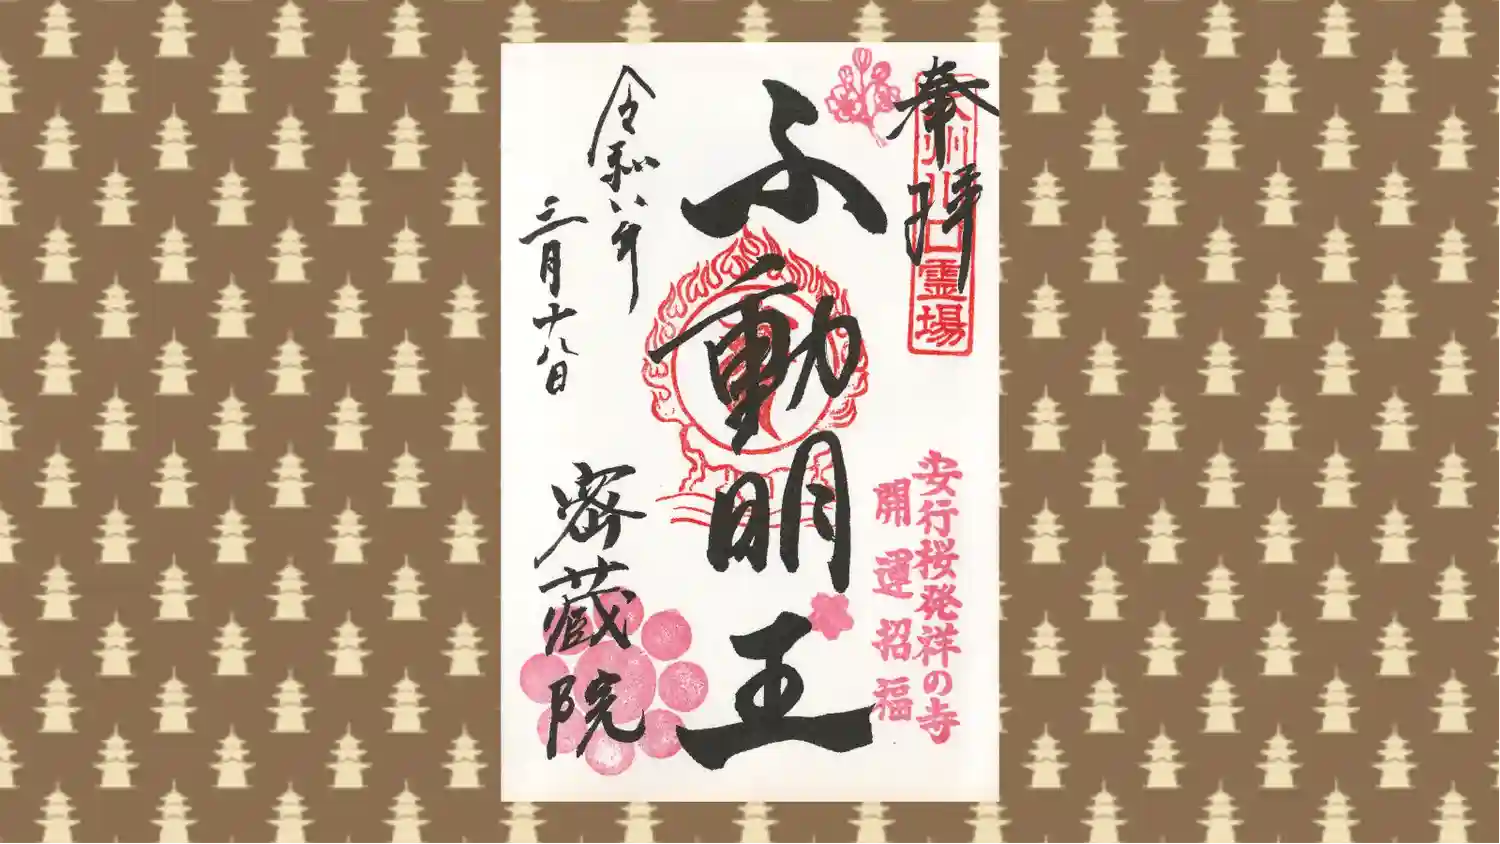 奉拝
武州川口霊場
安行桜発祥の寺
開運招福
ふ動明王
令和六年
三月十八日
密蔵院